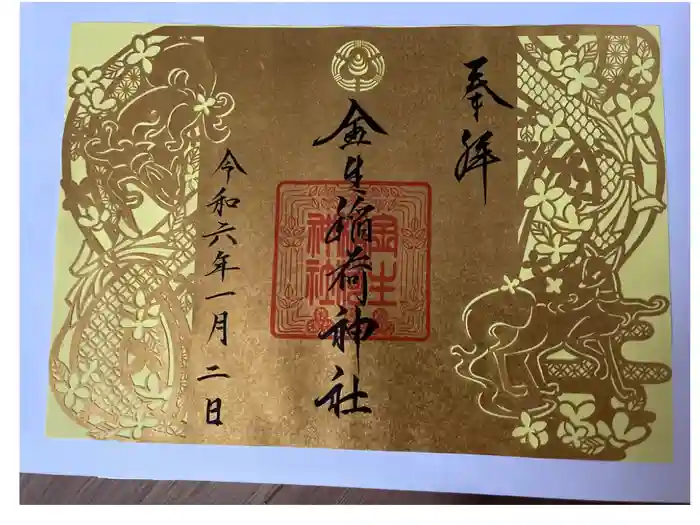 奉拝
金生稲荷神社
金生
稲荷
神社
令和六年一月二日